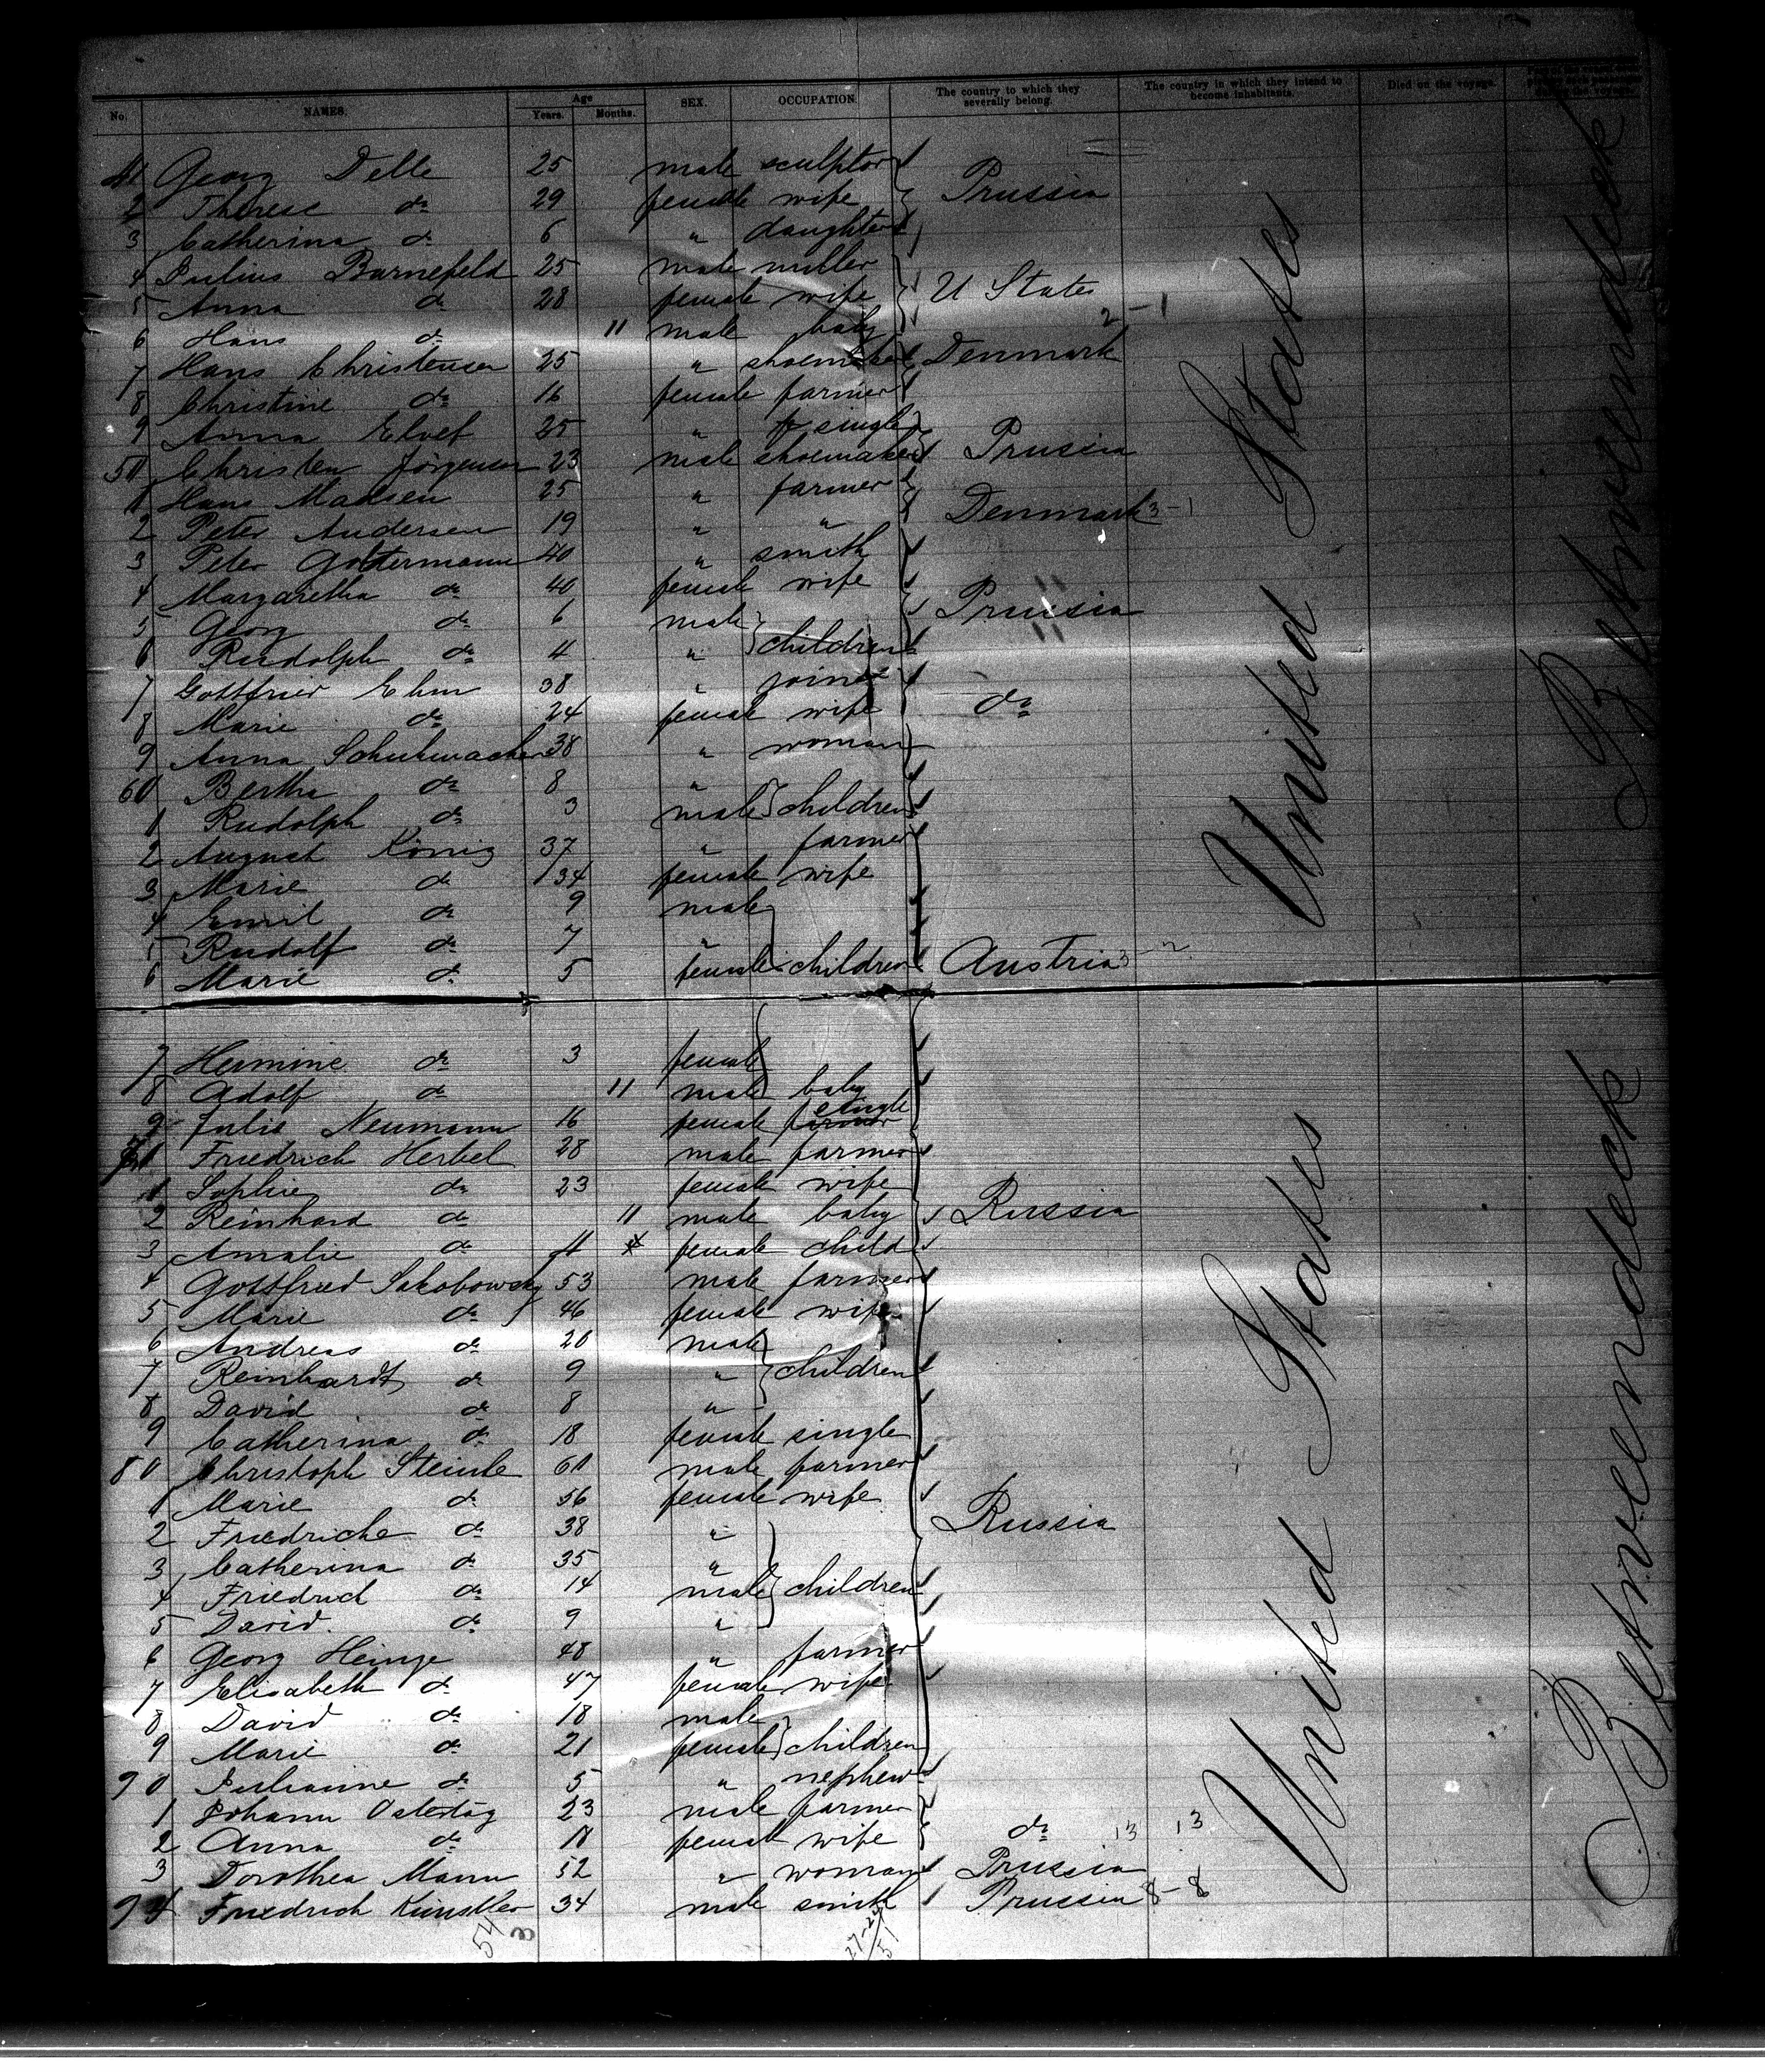 No. NAMES. Age Years. Months. SEX. OCCUPATION. The country to which they severally belong. The country in which they intend to become inhabitants. Died on the voyage.
41 Georg Delle 25 male sculptor
2 Therese do 29 female wife Prussia
3 Catherina do 6 " daughter
4 Julius Barnefeld 25 male miller
5 Anna do 28 female wife U States
6 Hans do 11 male baby 2-1
7 Hans Christensen 25 " shoemaker Denmark
8 Christine do 16 female farmer
9 Anna Elvef 25 " single
50 Christen Jörgensen 23 male shoemaker Prussia
1 Hans Madsen 25 " farmer
2 Peter Andersen 19 " " Denmark 3-1
3 Peter Gottermann 40 " smith
4 Margaretha do 40 female wife
5 Georg do 6 male Prussia
6 Rudolph do 4 " children
7 Gottfried Ehm 38 " joiner
8 Marie do 24 female wife do
9 Anna Schuhmacher 38 " woman
60 Bertha do 8 "
1 Rudolph do 3 male children
2 August König 37 " farmer
3 Marie do 34 female wife
4 Emil do 9 male
5 Rudolf do 7 "
6 Marie do 5 female children Austria 3-2
United States
Betweendeck
7 Hermine do 3 female
8 Adolf do 11 male baby
9 Julie Neumann 16 female single farmer
Friedrich Herbel 28 male farmer
1 Sophie do 23 female wife
2 Reinhard do 11 male baby Russia
3 Amalie do female child
4 Gottfried Jakobowsky 53 male farmer
5 Marie do 46 female wife
6 Andreas do 20 male
7 Reinhardt do 9 " children
8 David do 8 "
9 Catherina do 18 female single
80 Christoph Steinle 60 male farmer
1 Marie do 56 female wife
2 Friedricke do 38 " Russia
3 Catherina do 35 "
4 Friedrich do 14 male children
5 David do 9 "
6 Georg Heinze 48 " farmer
7 Elisabeth do 47 female wife
8 David do 18 male
9 Marie do 21 female children
90 Julianne do 5 " nephew
1 Johann Ostertag 23 male farmer
2 Anna do 18 female wife do 13 13
3 Dorothea Mann 52 " woman Prussia
94 Friedrich Künstler 34 male smith Prussia 8-8
United States
Betweendeck
54
3
51